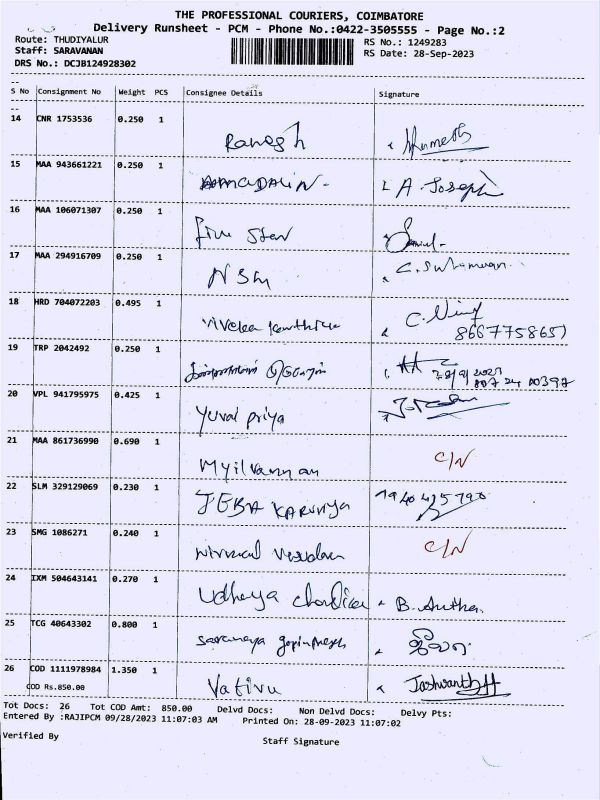 THE PROFESSIONAL COURIERS, COIMBATORE
Delivery Runsheet - PCM - Phone No.:0422-3505555 - Page No.:2
Route: THUDIYALUR RS No.: 1249283
Staff: SARAVANAN RS Date: 28-Sep-2023
DRS No.: DCJB124928302
S No Consignment No Weight PCS Consignee Details Signature
14 CNR 1753536 0.250 1
Ramesh
15 MAA 943661221 0.250 1
A. Joseph
16 MAA 106071307 0.250 1
Five Star
17 MAA 294916709 0.250 1
18 HRD 704072203 0.495 1
C.
8667758657
19 TRP 2042492 0.250 1
20 VPL 941795975 0.425 1
Yuvai priya
21 MAA 861736990 0.690 1
Myilvannan C/N
22 SLM 329129069 0.230 1
JEBA KARUNYA
23 SMG 1086271 0.240 1
C/N
24 IXM 504643141 0.270 1
Udhaya B.
25 TCG 40643302 0.800 1
26 COD 1111978984 1.350 1
COD Rs.850.00 Vativu Jashwanth
Tot Docs: 26 Tot COD Amt: 850.00 Delvd Docs: Non Delvd Docs: Delvy Pts:
Entered By :RAJIPCM 09/28/2023 11:07:03 AM Printed On: 28-09-2023 11:07:02
Verified By
Staff Signature